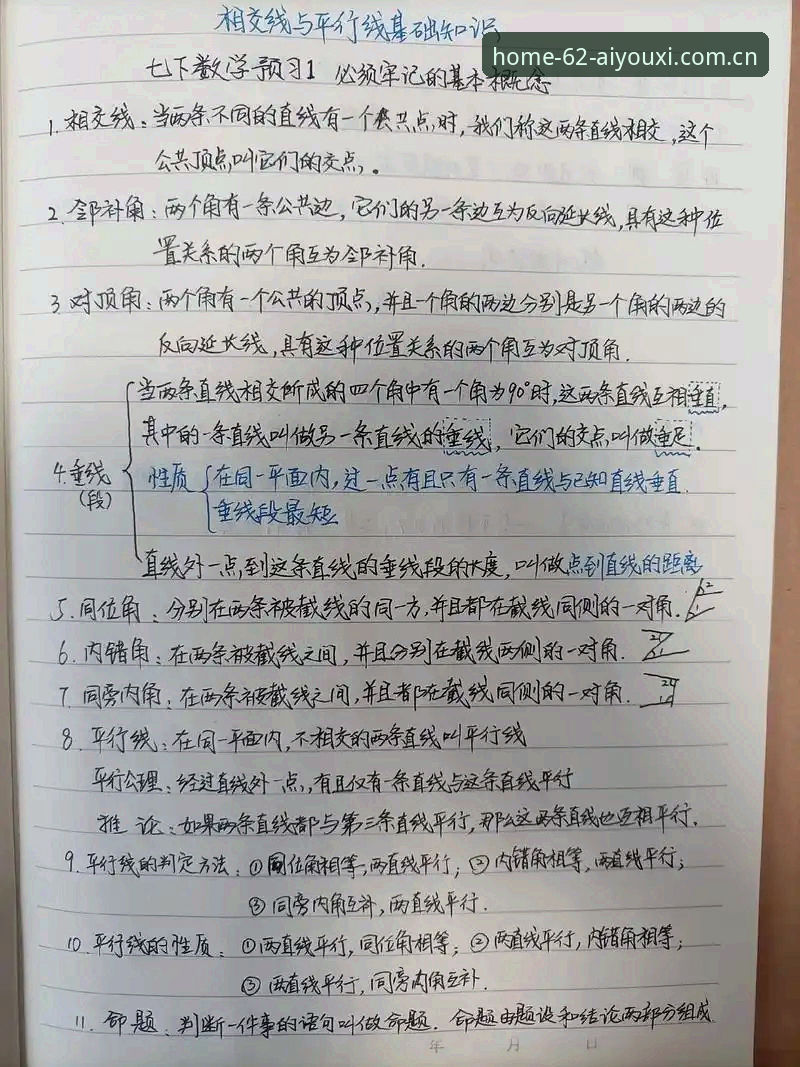 相交线与平行线基础知识
home-62-aiyouxi.com.cn
七下数学预习1 必须牢记的基本概念
1. 相交线：当两条不同的直线有一个公共点时，我们称这两条直线相交，这个
公共顶点叫它们的交点。
2. 邻补角：两个角有一条公共边，它们的另一条边互为反向延长线，具有这种位
置关系的两个角互为邻补角.
3 对顶角：两个角有一个公共的顶点，并且一个角的两边分别是另一个角的两边的
反向延长线，具有这种位置关系的两个角互为对顶角.
当两条直线相交所成的四个角中有一个角为90°时，这两条直线互相垂直，
其中的一条直线叫做另一条直线的垂线，它们的交点叫做垂足。
4. 垂线
(段)
性质 在同一平面内，过一点有且只有一条直线与已知直线垂直.
垂线段最短
直线外一点到这条直线的垂线段的长度，叫做点到直线的距离
5. 同位角：分别在两条被截线的同一方，并且都在截线同侧的一对角. 2 1
6. 内错角：在两条被截线之间，并且分别在截线两侧的一对角. 2 1
7. 同旁内角：在两条被截线之间，并且都在截线同侧的一对角. 2 1
8. 平行线：在同一平面内，不相交的两条直线叫平行线
平行公理：经过直线外一点，有且仅有一条直线与这条直线平行
推 论：如果两条直线都与第三条直线平行，那么这两条直线也互相平行.
9. 平行线的判定方法：①同位角相等，两直线平行；②内错角相等，两直线平行；
③同旁内角互补，两直线平行.
10. 平行线的性质：①两直线平行，同位角相等；②两直线平行，内错角相等；
③两直线平行，同旁内角互补.
11. 命题：判断一件事的语句叫做命题. 命题由题设和结论两部分组成
年 月 日